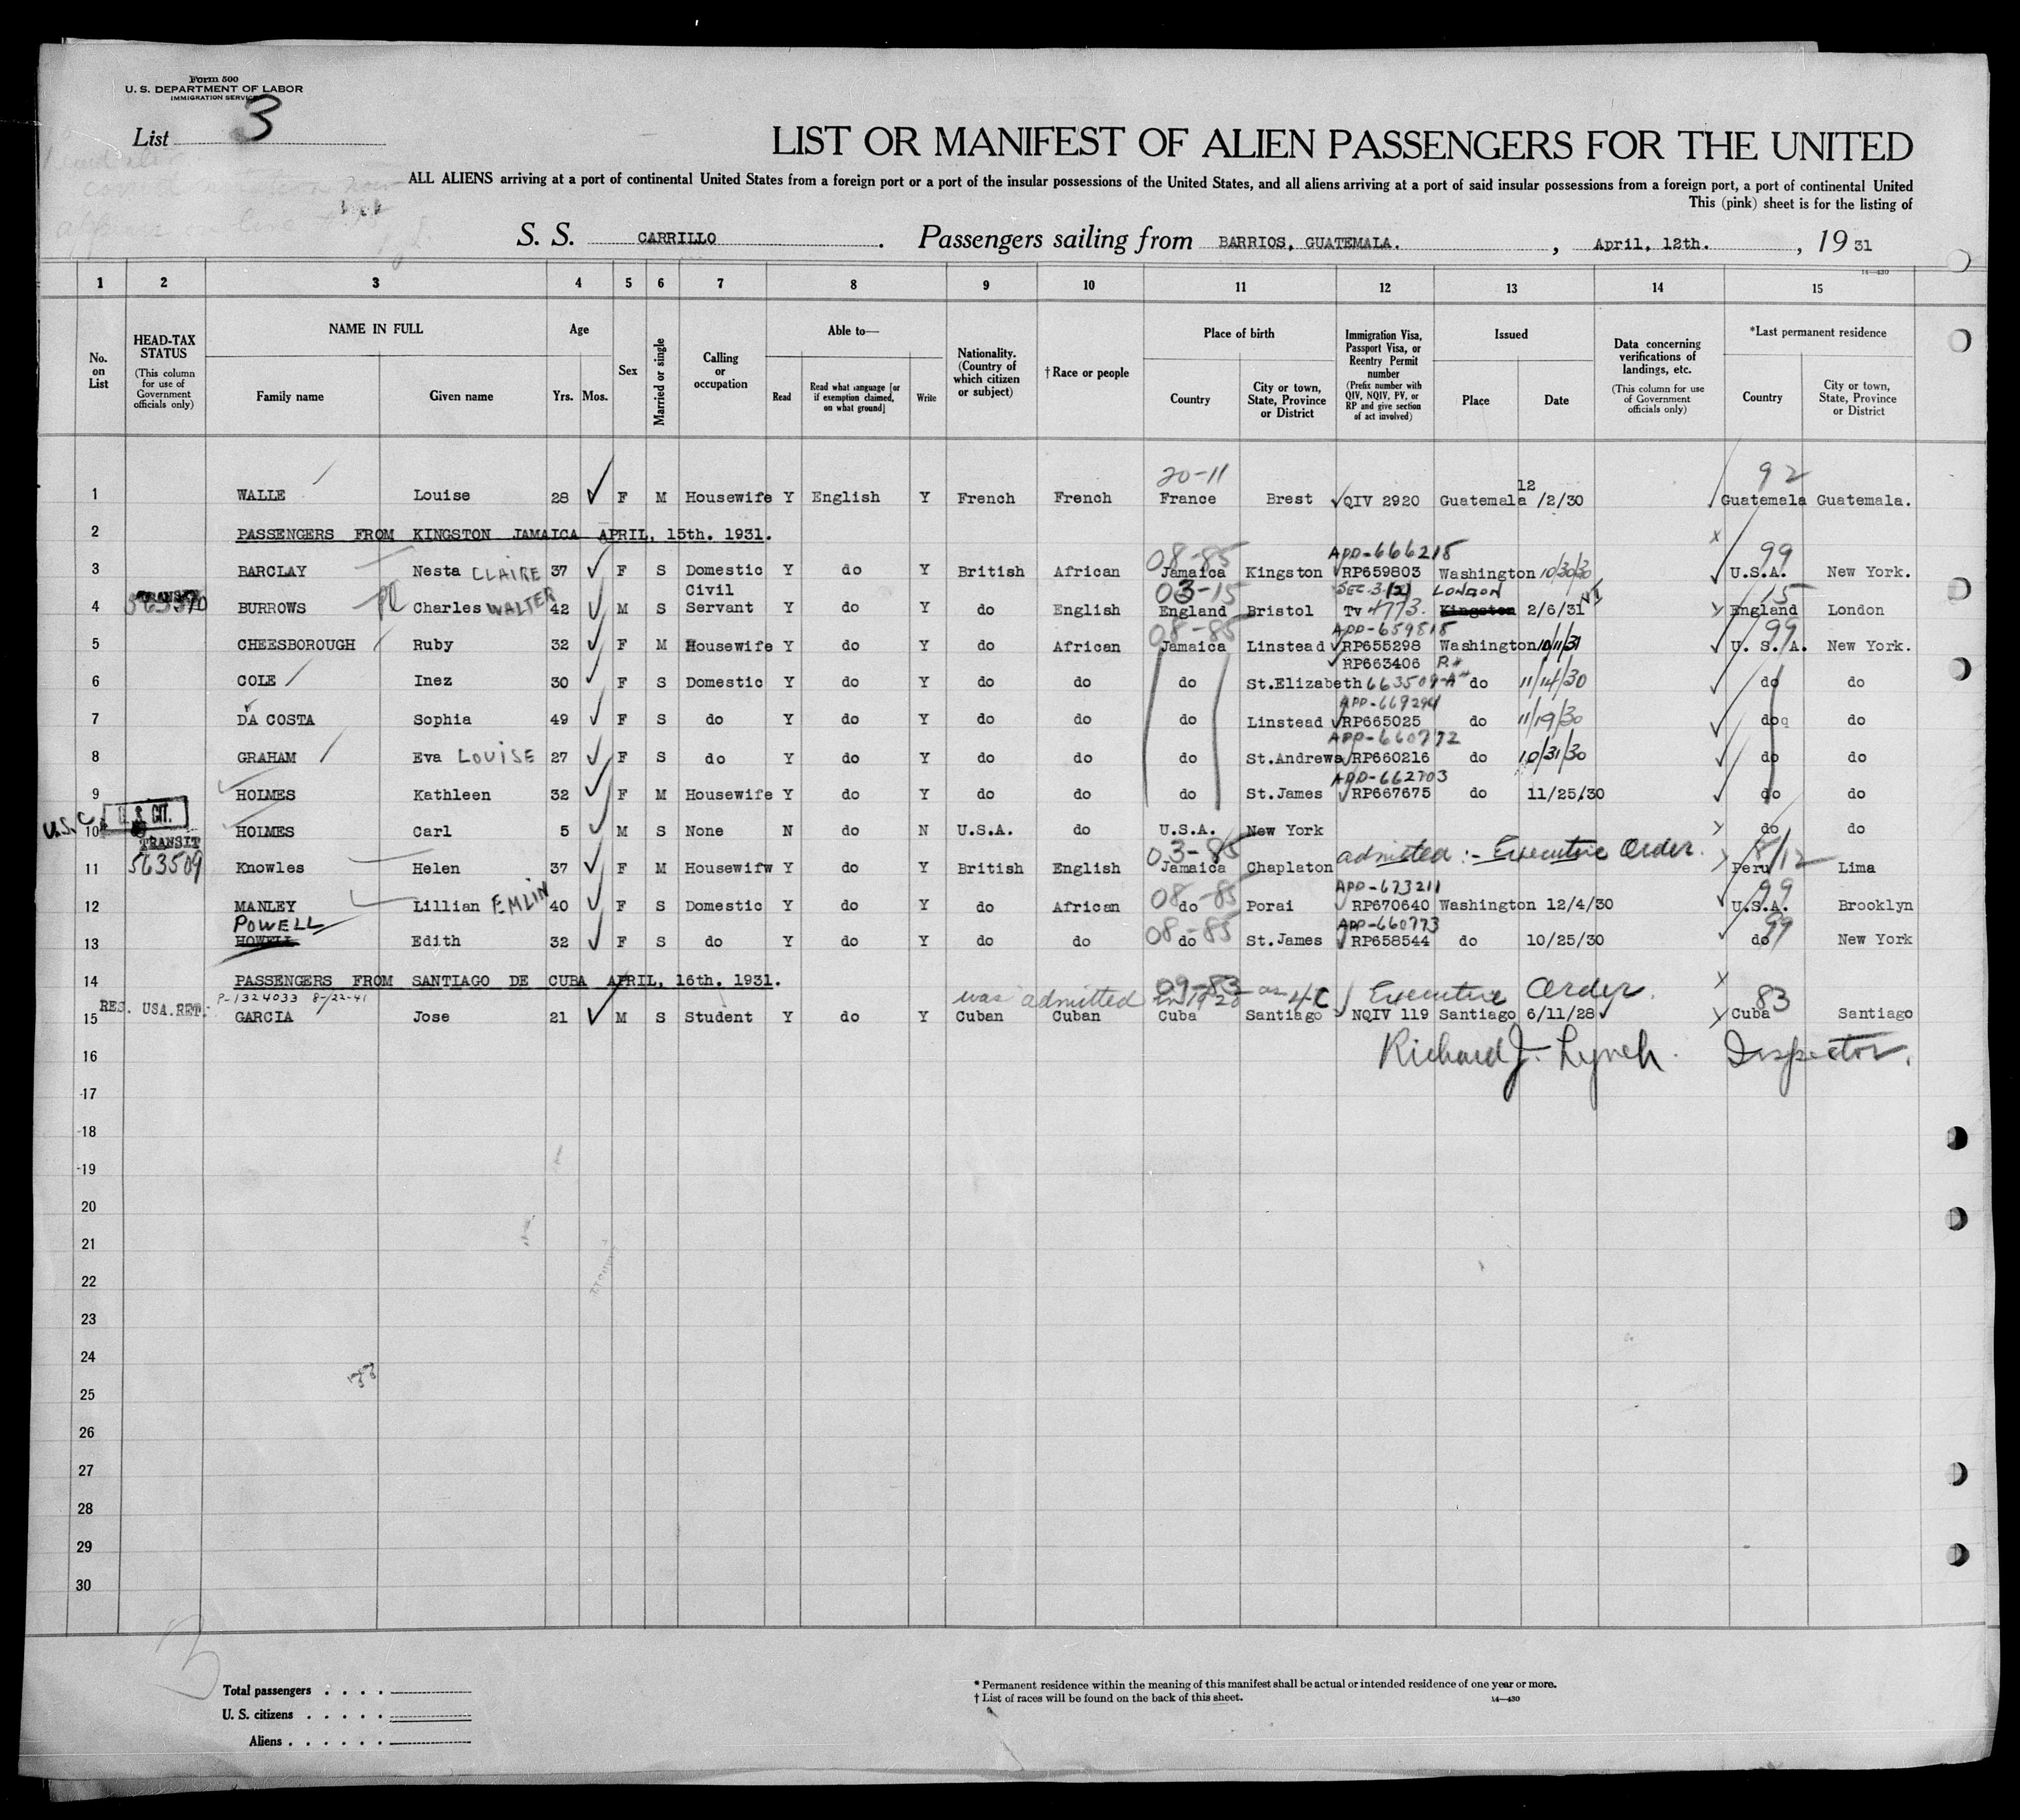 Form 500
U. S. DEPARTMENT OF LABOR
IMMIGRATION SERVICE
List 3
LIST OR MANIFEST OF ALIEN PASSENGERS FOR THE UNITED
ALL ALIENS arriving at a port of continental United States from a foreign port or a port of the insular possessions of the United States, and all aliens arriving at a port of said insular possessions from a foreign port, a port of continental United
This (pink) sheet is for the listing of
S. S. CARRILLO. Passengers sailing from BARRIOS, GUATEMALA. , April, 12th. , 19 31
14—430
1 2 3 4 5 6 7 8 9 10 11 12 13 14 15
No. on List
HEAD-TAX STATUS (This column for use of Government officials only)
NAME IN FULL
Family name Given name
Age
Yrs. Mos.
Sex
Married or single
Calling or occupation
Able to—
Read Read what language [or if exemption claimed, on what ground] Write
Nationality. (Country of which citizen or subject)
†Race or people
Place of birth
Country City or town, State, Province or District
Immigration Visa, Passport Visa, or Reentry Permit number (Prefix number with QIV, NQIV, PV, or RP and give section of act involved)
Issued
Place Date
Data concerning verifications of landings, etc. (This column for use of Government officials only)
*Last permanent residence
Country City or town, State, Province or District
20-11 92
12
1 WALLE Louise 28 F M Housewife Y English Y French French France Brest QIV 2920 Guatemala /2/30 Guatemala Guatemala.
2 PASSENGERS FROM KINGSTON JAMAICA APRIL, 15th. 1931.
08-85 APP-666215 99
3 BARCLAY Nesta CLAIRE 37 F S Domestic Y do Y British African Jamaica Kingston RP659803 Washington 10/30/30 U.S.A. New York.
TRANSIT Civil 03-15 SEC. 3(2) LONDON 15
4 563570 BURROWS Charles WALTER 42 M S Servant Y do Y do English England Bristol Tv 4773. Kingston 2/6/31 England London
08-85 APP-659815 99
5 CHEESBOROUGH Ruby 32 F M Housewife Y do Y do African Jamaica Linstead RP655298 Washington 10/11/31 U. S. A. New York.
RP663406
6 COLE Inez 30 F S Domestic Y do Y do do do St.Elizabeth 663509 do 11/14/30 do do
APP-669294
7 DA COSTA Sophia 49 F S do Y do Y do do do Linstead RP665025 do 11/19/30 do do
APP-660772
8 GRAHAM Eva LOUISE 27 F S do Y do Y do do do St.Andrews RP660216 do 10/31/30 do do
APP-662703
9 HOLMES Kathleen 32 F M Housewife Y do Y do do do St.James RP667675 do 11/25/30 do do
U.S.C. U. S. CIT.
10 HOLMES Carl 5 M S None N do N U.S.A. do U.S.A. New York do do
TRANSIT 03-85 admitted :- Executive Order. 8/12
11 563509 Knowles Helen 37 F M Housewifw Y do Y British English Jamaica Chapleton Peru Lima
08-85 APP-673211 99
12 MANLEY Lillian EMLIN 40 F S Domestic Y do Y do African do Porai RP670640 Washington 12/4/30 U.S.A. Brooklyn
POWELL 08-85 APP-660773 99
13 HOWELL Edith 32 F S do Y do Y do do do St.James RP658544 do 10/25/30 do New York
14 PASSENGERS FROM SANTIAGO DE CUBA APRIL, 16th. 1931.
RES. USA.RET. P-1324033 8-/22-41 was admitted in 1928 as 4-C 09-83 Executive Order. 83
15 GARCIA Jose 21 M S Student Y do Y Cuban Cuban Cuba Santiago NQIV 119 Santiago 6/11/28 Cuba Santiago
16 Richard J. Lynch. Inspector.
17
18
19
20
21
22
23
24
25
26
27
28
29
30
3
Total passengers . . . .
U. S. citizens . . . . .
Aliens . . . . . .
* Permanent residence within the meaning of this manifest shall be actual or intended residence of one year or more.
† List of races will be found on the back of this sheet.
14—430